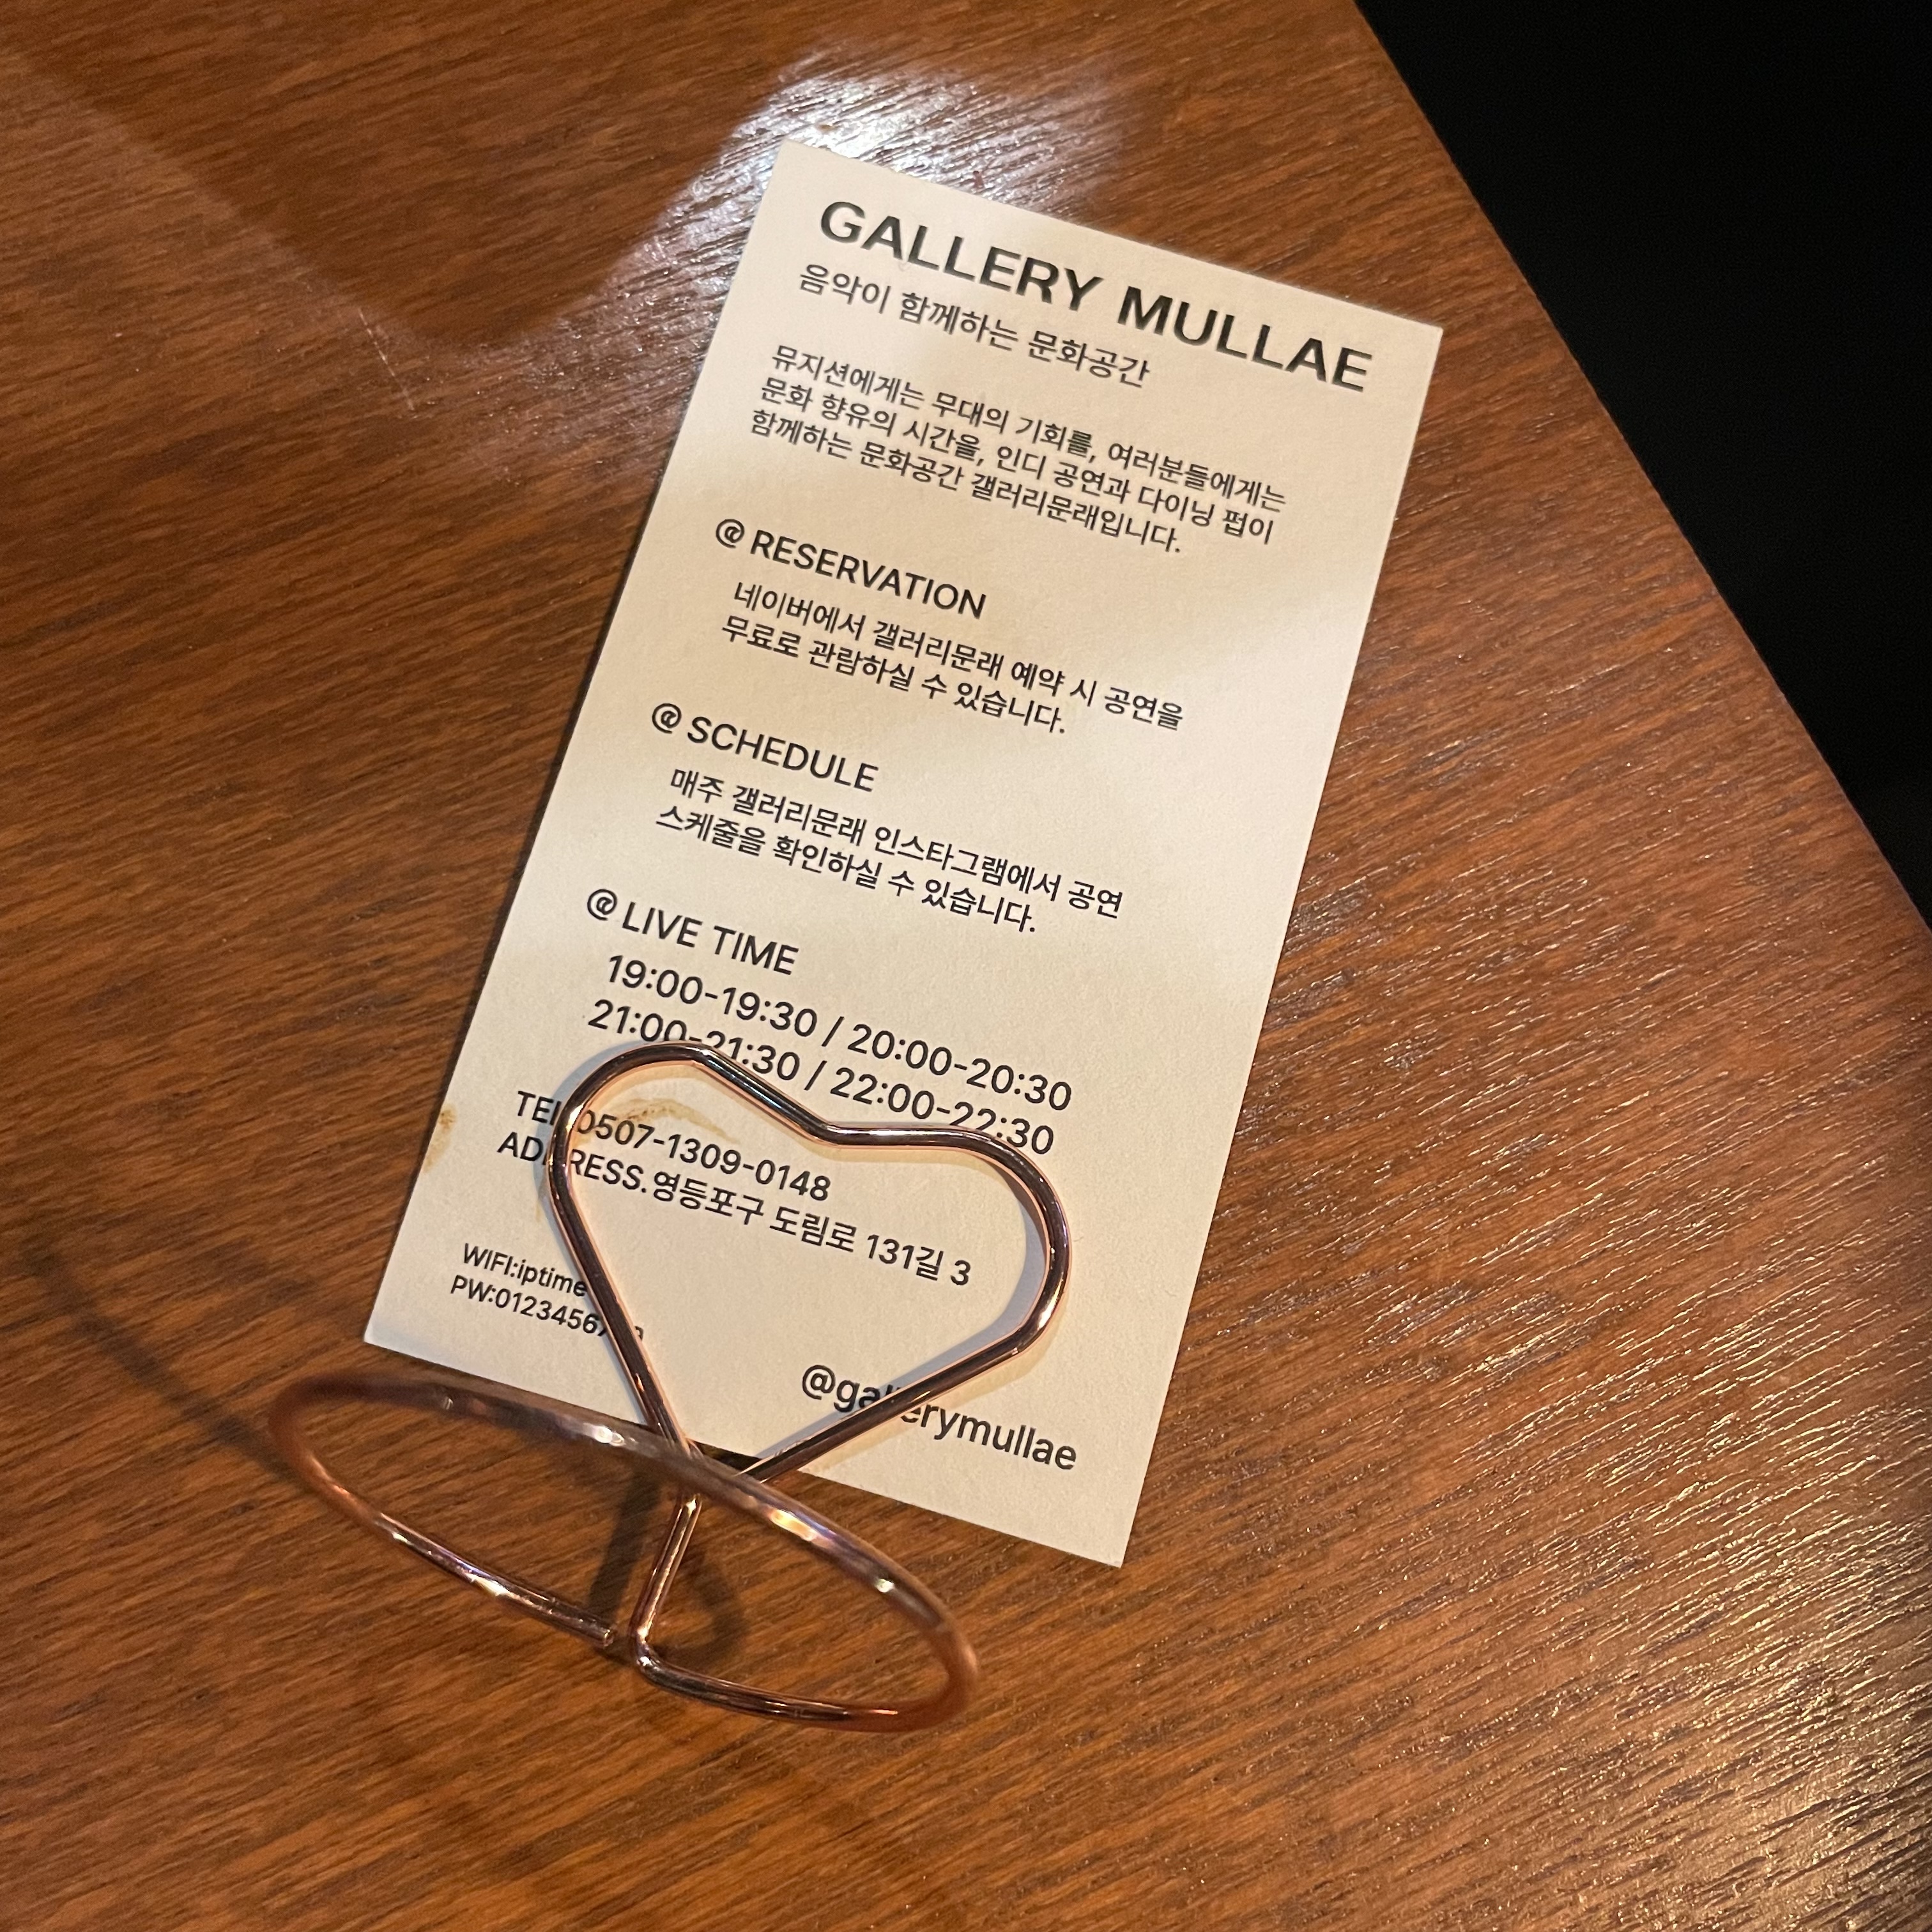 GALLERY MULLAE
음악이 함께하는 문화공간
뮤지션에게는 무대의 기회를, 여러분들에게는
문화 향유의 시간을, 인디 공연과 다이닝 펍이
함께하는 문화공간 갤러리문래입니다.
@ RESERVATION
네이버에서 갤러리문래 예약 시 공연을
무료로 관람하실 수 있습니다.
@ SCHEDULE
매주 갤러리문래 인스타그램에서 공연
스케줄을 확인하실 수 있습니다.
@ LIVE TIME
19:00-19:30 / 20:00-20:30
21:00-21:30 / 22:00-22:30
TEL 0507-1309-0148
ADDRESS.영등포구 도림로 131길 3
WIFI:iptime
@gallerymullae